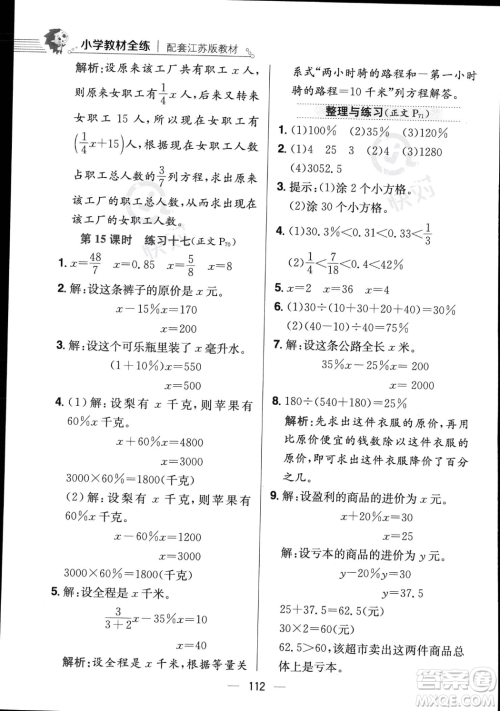 小学教材全练 配套江苏版教材
解析:设原来该工厂共有职工 x
人,则原来女职工有 1/4 x 人,增加
女职工 15 人,那么女职工有
(1/4 x+15)人,根据现在女职工人数
占职工总人数的 3/7 列方程解答,
求出该工厂的女职工人数。
第 15 课时 练习十七(正文 P70)
1. x=48/7 x=0.3 x=5/8 x=8
2. 解:设这条裤子的原价是 x 元。
x-15%x=170
x=200
3. 解:设这个可乐瓶里装了 x 毫升水。
(1+10%)x=550
x=500
4. (1)解:设梨有 x 千克,则苹果有
60%x 千克。
x+60%x=4800
x=3000
3000×60%=1800(千克)
(2)解:设梨有 x 千克,则苹果有
60%x 千克。
x-60%x=1200
x=3000
3000×60%=1800(千克)
5. 解:设全程是 x 千米。
3/(3+2) x-x/2=10%x
x=40
解析:设全程是 x 千米,根据等量关
系式“两小时骑的路程-第一小时
骑的路程=10 千米”列方程解答。
整理与练习(正文 P71)
1. (1)100% (2)35% (3)120%
2. (1)4 25 3 (2)40 (3)1280
(4)3052.5
3. 提示:(1)涂 2 个小方格。
(2)涂 10 个小方格。
4. (1)30.3%<0.31<0.33<1/3
(2)1/4<7/18<0.4<42%
5. x=2 x=36 x=20
6. (1)30÷(10+30+20+40)=30%
(2)10÷(10+40)=20%
7. 解:设这条公路全长 x 米。
35%x-25%x=200
x=2000
8. 180÷(540+180)=25%
解析:先求出这件衣服的原价,再用
现价比原价便宜的钱数除以这件衣
服的原价,求出这件衣服降价了百
分之几。
9. 解:设盈利的商品的进价为 x 元。
x+20%x=30
x=25
解:设亏本的商品的进价为 y 元。
y-20%y=30
y=37.5
25+37.5=62.5(元)
30×2=60(元)
62.5>60,该超市卖出这两件商品总
体上是亏本。
112